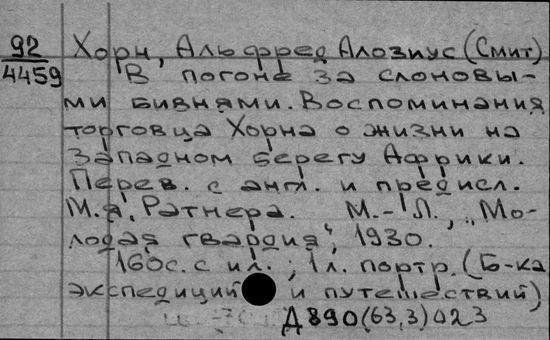 92
4459
Хорн, Альфред Алозиус (Смит)
В погоне за слоновы-
ми бивнями. Воспоминания
торговца Хорна о жизни на
Западном берегу Африки.
Перев. с англ. и предисл.
М.Я. Ратнера. М.-Л., „Мо-
лодая гвардия", 1930.
160с. с ил.; 1л. портр. (Б-ка
экспедиций и путешествий)
Д890(63,3)023